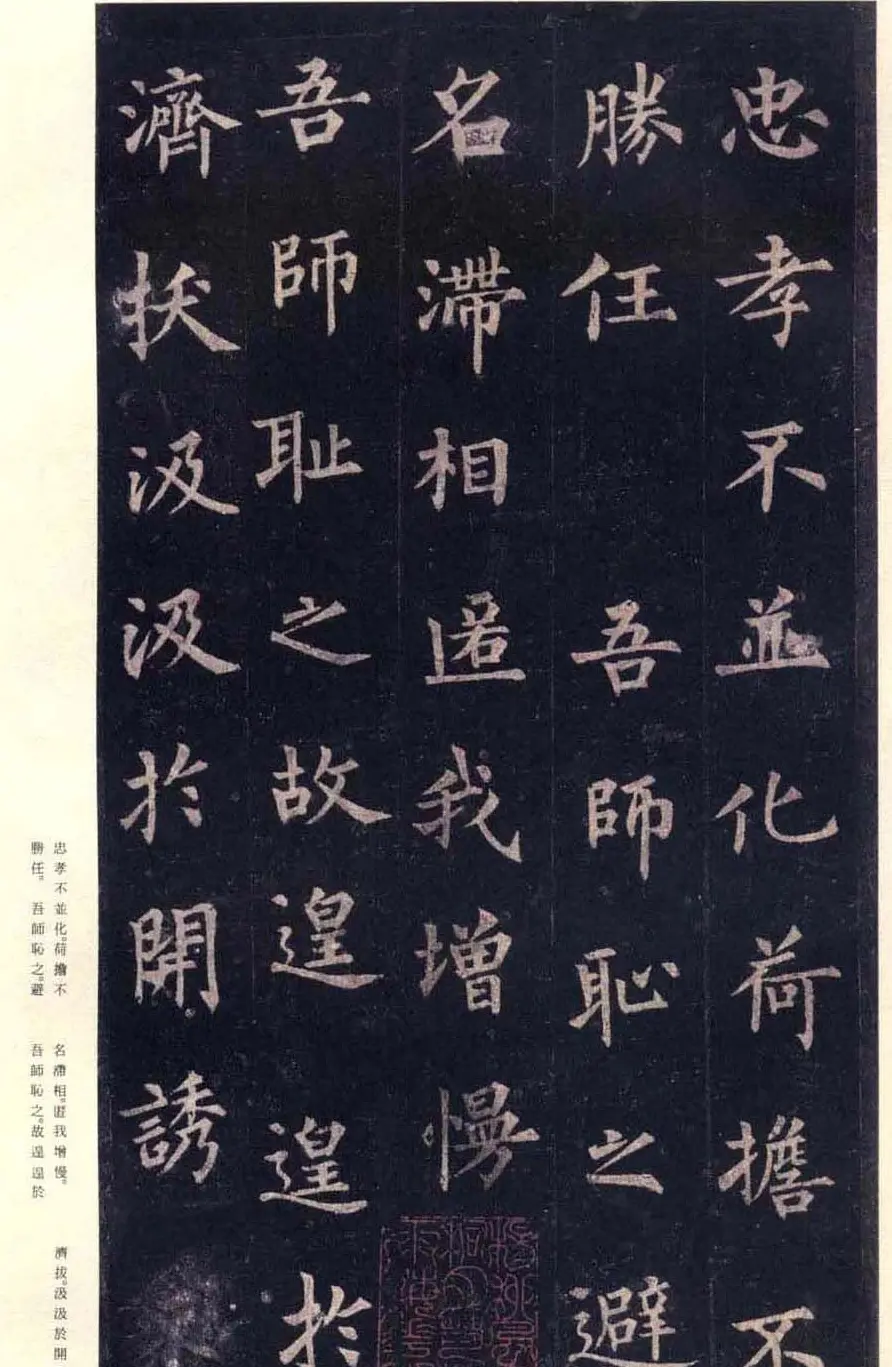 忠孝不並化荷擔不
勝任 吾師恥之避
名滯相匿我增慢
吾師耻之故遑遑於
濟拔汲汲於開誘
忠孝不並化。荷擔不
勝任。 吾師恥之。避
名滯相。匿我增慢。
吾師恥之。故遑遑於
濟拔。汲汲於開